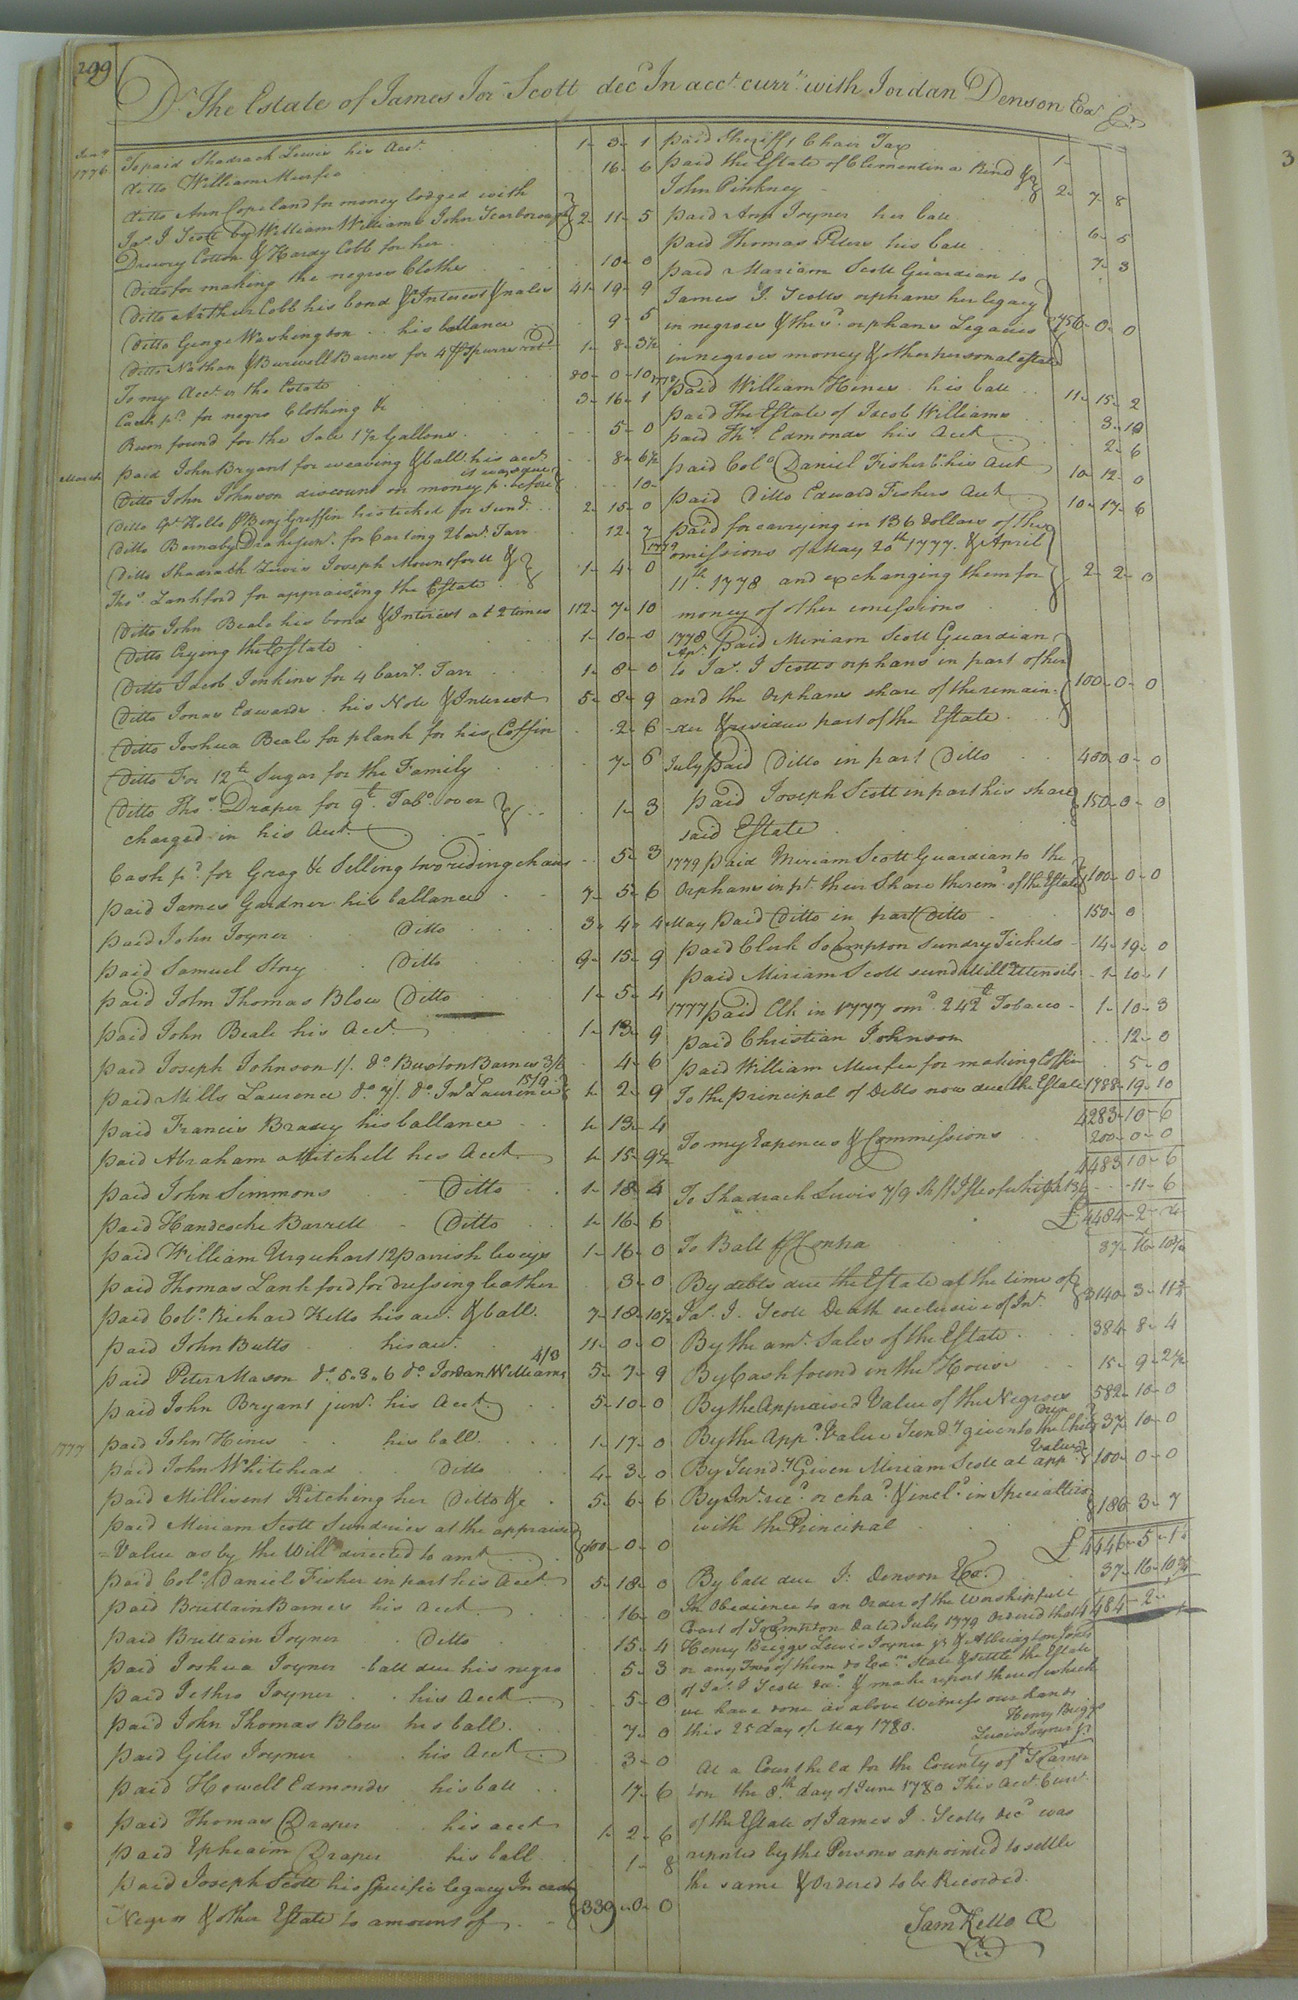 299
Dr. The Estate of James Jor. Scott decd. In acct. currt. with Jordan Denson Exr. Cr.
1776 To paid Shadrach Lewis his Acct. 1 - 3 - 1
ditto William Murfee 16 - 6
ditto Ann Copeland for money lodged with
Jas. J Scott by William Williams John Scarborough 2 - 11 - 5
Drewry Cotton & Hardy Cobb for her
Ditto for making the negroes Clothes 10 - 0
Ditto Arthur Cobb his bond & Interest & nales 41 - 19 - 9
Ditto George Washington his ballance 9 - 5
Ditto Nathan & Burwell Barnes for 4 1 - 8 - 3½
To my Acct. vs the Estate 80 - 0 - 10
Cash pd. for negro Clothing &c 3 - 16 - 1
Rum found for the Sale 1½ Gallons 5 - 0
March paid John Bryant for weaving & ball. his acct. 8 - 6½
Ditto John Johnson discount on money pd. before it was due 10 -
Ditto Benj. Griffin his ticket for Sund. 2 - 15 - 0
Ditto Barnaby Drake junr. for Carting 2 bar. Tarr 12 - 7
Ditto Shadrack Lewis Joseph Mounsfortt &
Thos. Lankford for appraising the Estate 1 - 4 - 0
Ditto John Beale his bond & Interest at 2 times 112 - 7 - 10
Ditto Crying the Estate 1 - 10 - 0
Ditto Jacob Jenkins for 4 barrl. Tarr 1 - 8 - 0
Ditto Jonas Edwards his Note & Interest 5 - 8 - 9
Ditto Joshua Beale for plank for his Coffin 2 - 6
Ditto For 12 lb Sugar for the Family 7 - 6
Ditto Thos. Draper for 9 lb. Tabo. over
charged in his Acct. 1 - 3
Cash pd. for Grog & Selling two riding chairs 5 - 3
paid James Gardner his ballance 7 - 5 - 6
paid John Joyner Ditto 3 - 4 - 4
paid Samuel Story Ditto 9 - 15 - 9
paid John Thomas Blow Ditto 1 - 5 - 4
paid John Beale his Acct. 1 - 13 - 9
paid Joseph Johnson 1/. do. Buxton Barnes 3/6 4 - 6
paid Mills Laurence do. 7/. do. Jno. Laurence 15/9 1 - 2 - 9
paid Francis Bracey his ballance 1 - 13 - 4
paid Abraham Mitchell his Acct. 1 - 15 - 9½
paid John Simmons Ditto 1 - 18 - 4
paid Handcocke Barrett Ditto 1 - 16 - 6
paid William Urquhart 12 parish leveys 1 - 16 - 0
paid Thomas Lankford for dressing leather 3 - 0
paid Colo. Richard Kello his act. & ball. 7 - 18 - 10½
paid John Butts his act. 11 - 0 - 0
paid Peter Mason do. 5.3.6 do. Jordan Williams 4/3 5 - 7 - 9
paid John Bryant junr. his Acct. 5 - 10 - 0
1777 paid John Hines his ball. 1 - 17 - 0
paid John Whitehead Ditto 4 - 3 - 0
paid Millisent Kitching her Ditto &c 5 - 6 - 6
paid Miriam Scott Sundries at the appraised
Value as by the Will directed to amt. 100 - 0 - 0
paid Colo. Daniel Fisher in part his Acct. 5 - 18 - 0
paid Brittain Barnes his Acct. 16 - 0
paid Brittain Joyner Ditto 15 - 4
paid Joshua Joyner ball due his negro 5 - 3
paid Jethro Joyner his Acct. 5 - 0
paid John Thomas Blow his ball. 7 - 0
paid Giles Joyner his Acct. 3 - 0
paid Howell Edmonds his ball 17 - 6
paid Thomas Draper his acct 1 - 2 - 6
paid Ephraim Draper his ball 1 - 8
paid Joseph Scott his Specific legacy In cash
Negro & other Estate to amount of 339 - 0 - 0
paid Sheriff 1 Chair Tax 1 -
paid the Estate of Clementina Rind &
John Pinkney 2 - 7 - 8
paid Ann Joyner her ball 6 - 5
paid Thomas Peters his ball 7 - 3
paid Mariam Scott Guardian to
James J. Scotts orphans her legacy
in negroes & the sd. orphans Legacies 756 - 0 - 0
in negroes money & other personal estate
paid William Hines his ball 11 - 15 - 2
paid The Estate of Jacob Williams 3 - 10
paid Thos. Edmonds his Acct 2 - 6
paid Colo. Daniel Fisher his Acct 10 - 12 - 0
paid Ditto Edward Fishers Acct 10 - 17 - 6
1779 paid for carrying in 136 dollars of the
omissions of May 20th 1777. & April
11th. 1778 and exchanging them for 2 - 2 - 0
money of other emissions
1778 Apr. paid Miriam Scott Guardian
to Jas. J Scotts orphans in part of her
and the Orphans share of the remain- 100 - 0 - 0
-der & residue part of the Estate
July paid Ditto in part Ditto 400 - 0 - 0
paid Joseph Scott in part his share 150 - 0 - 0
said Estate
1779 paid Miriam Scott Guardian to the
Orphans in pt. their Share the remr. of the Estate 100 - 0 - 0
May paid Ditto in part Ditto 150 - 0
paid Clerk So.ampton Sundry Tickets 14 - 19 - 0
paid Miriam Scott sund. Mill Utensils 1 - 10 - 1
1777 paid Clk in 1777 omd. 242 lb Tobacco 1 - 10 - 3
paid Christian Johnson 12 - 0
paid William Murfee for making Coffin 5 - 0
To the principal of Debts now due the Estate 1788 - 19 - 10
4283 - 10 - 6
To my Expences & Commissions 200 - 0 - 0
4483 - 10 - 6
To Shadrach Lewis 7/9 11 - 6
£ 4484 - 2 -
To Ball pr Contra 37 - 16 - 10¾
By debts due the Estate at the time of
Jas. J. Scott Death exclusive of Int. 3140 - 3 - 11½
By the amt. Sales of the Estate 384 - 8 - 4
By Cash found in the House 15 - 9 - 2½
By the Appraised Value of the Negroes 582 - 10 - 0
By the Appd. Value Sundy. given to the Children 37 - 10 - 0
By Sundy. Given Miriam Scott at appd. Value 100 - 0 - 0
By Int. recd. or chad. & incld. in Specialties
with the Principal 186 - 3 - 7
£ 4446 - 5 - 1
By ball due J. Denson Exr. 37 - 16 - 10¾
4484 - 2 -
In Obedience to an Order of the Worshipfull
Court of So.ampton Dated July 1779 Ordered that
Henry Briggs Lewis Joyner jr. & Albridgton Jones
or any Two of them do Exmn. State & settle the Estate
of Jas. J Scott decd. & make report thereof which
we have done as above Witness our hands
this 25 day of May 1780. Henry Briggs
Lewis Joyner jr.
At a Court held for the County of So.amp-
ton the 8th day of June 1780 This Acct. Curt.
of the Estate of James J. Scotts decd. was
reported by the Persons appointed to settle
the same & Ordered to be Recorded.
Sam Kello CC